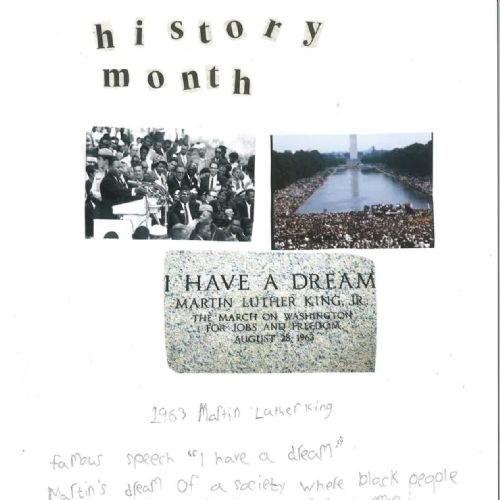 history
month
I HAVE A DREAM
MARTIN LUTHER KING, JR.
THE MARCH ON WASHINGTON
FOR JOBS AND FREEDOM
AUGUST 28, 1963
1963 Martin Luther King
famous speech "I have a dream"
Martin's dream of a society where black people